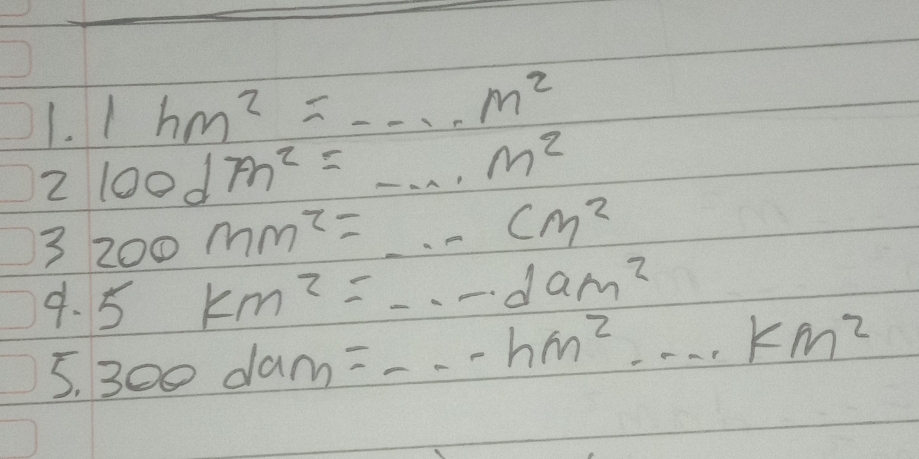 1. 1 hm² = ..... m²
2 100 dm² = ..... m²
3 200 mm² = .... cm²
4. 5 km² = .... dam²
5. 300 dam = .... hm² .... km²